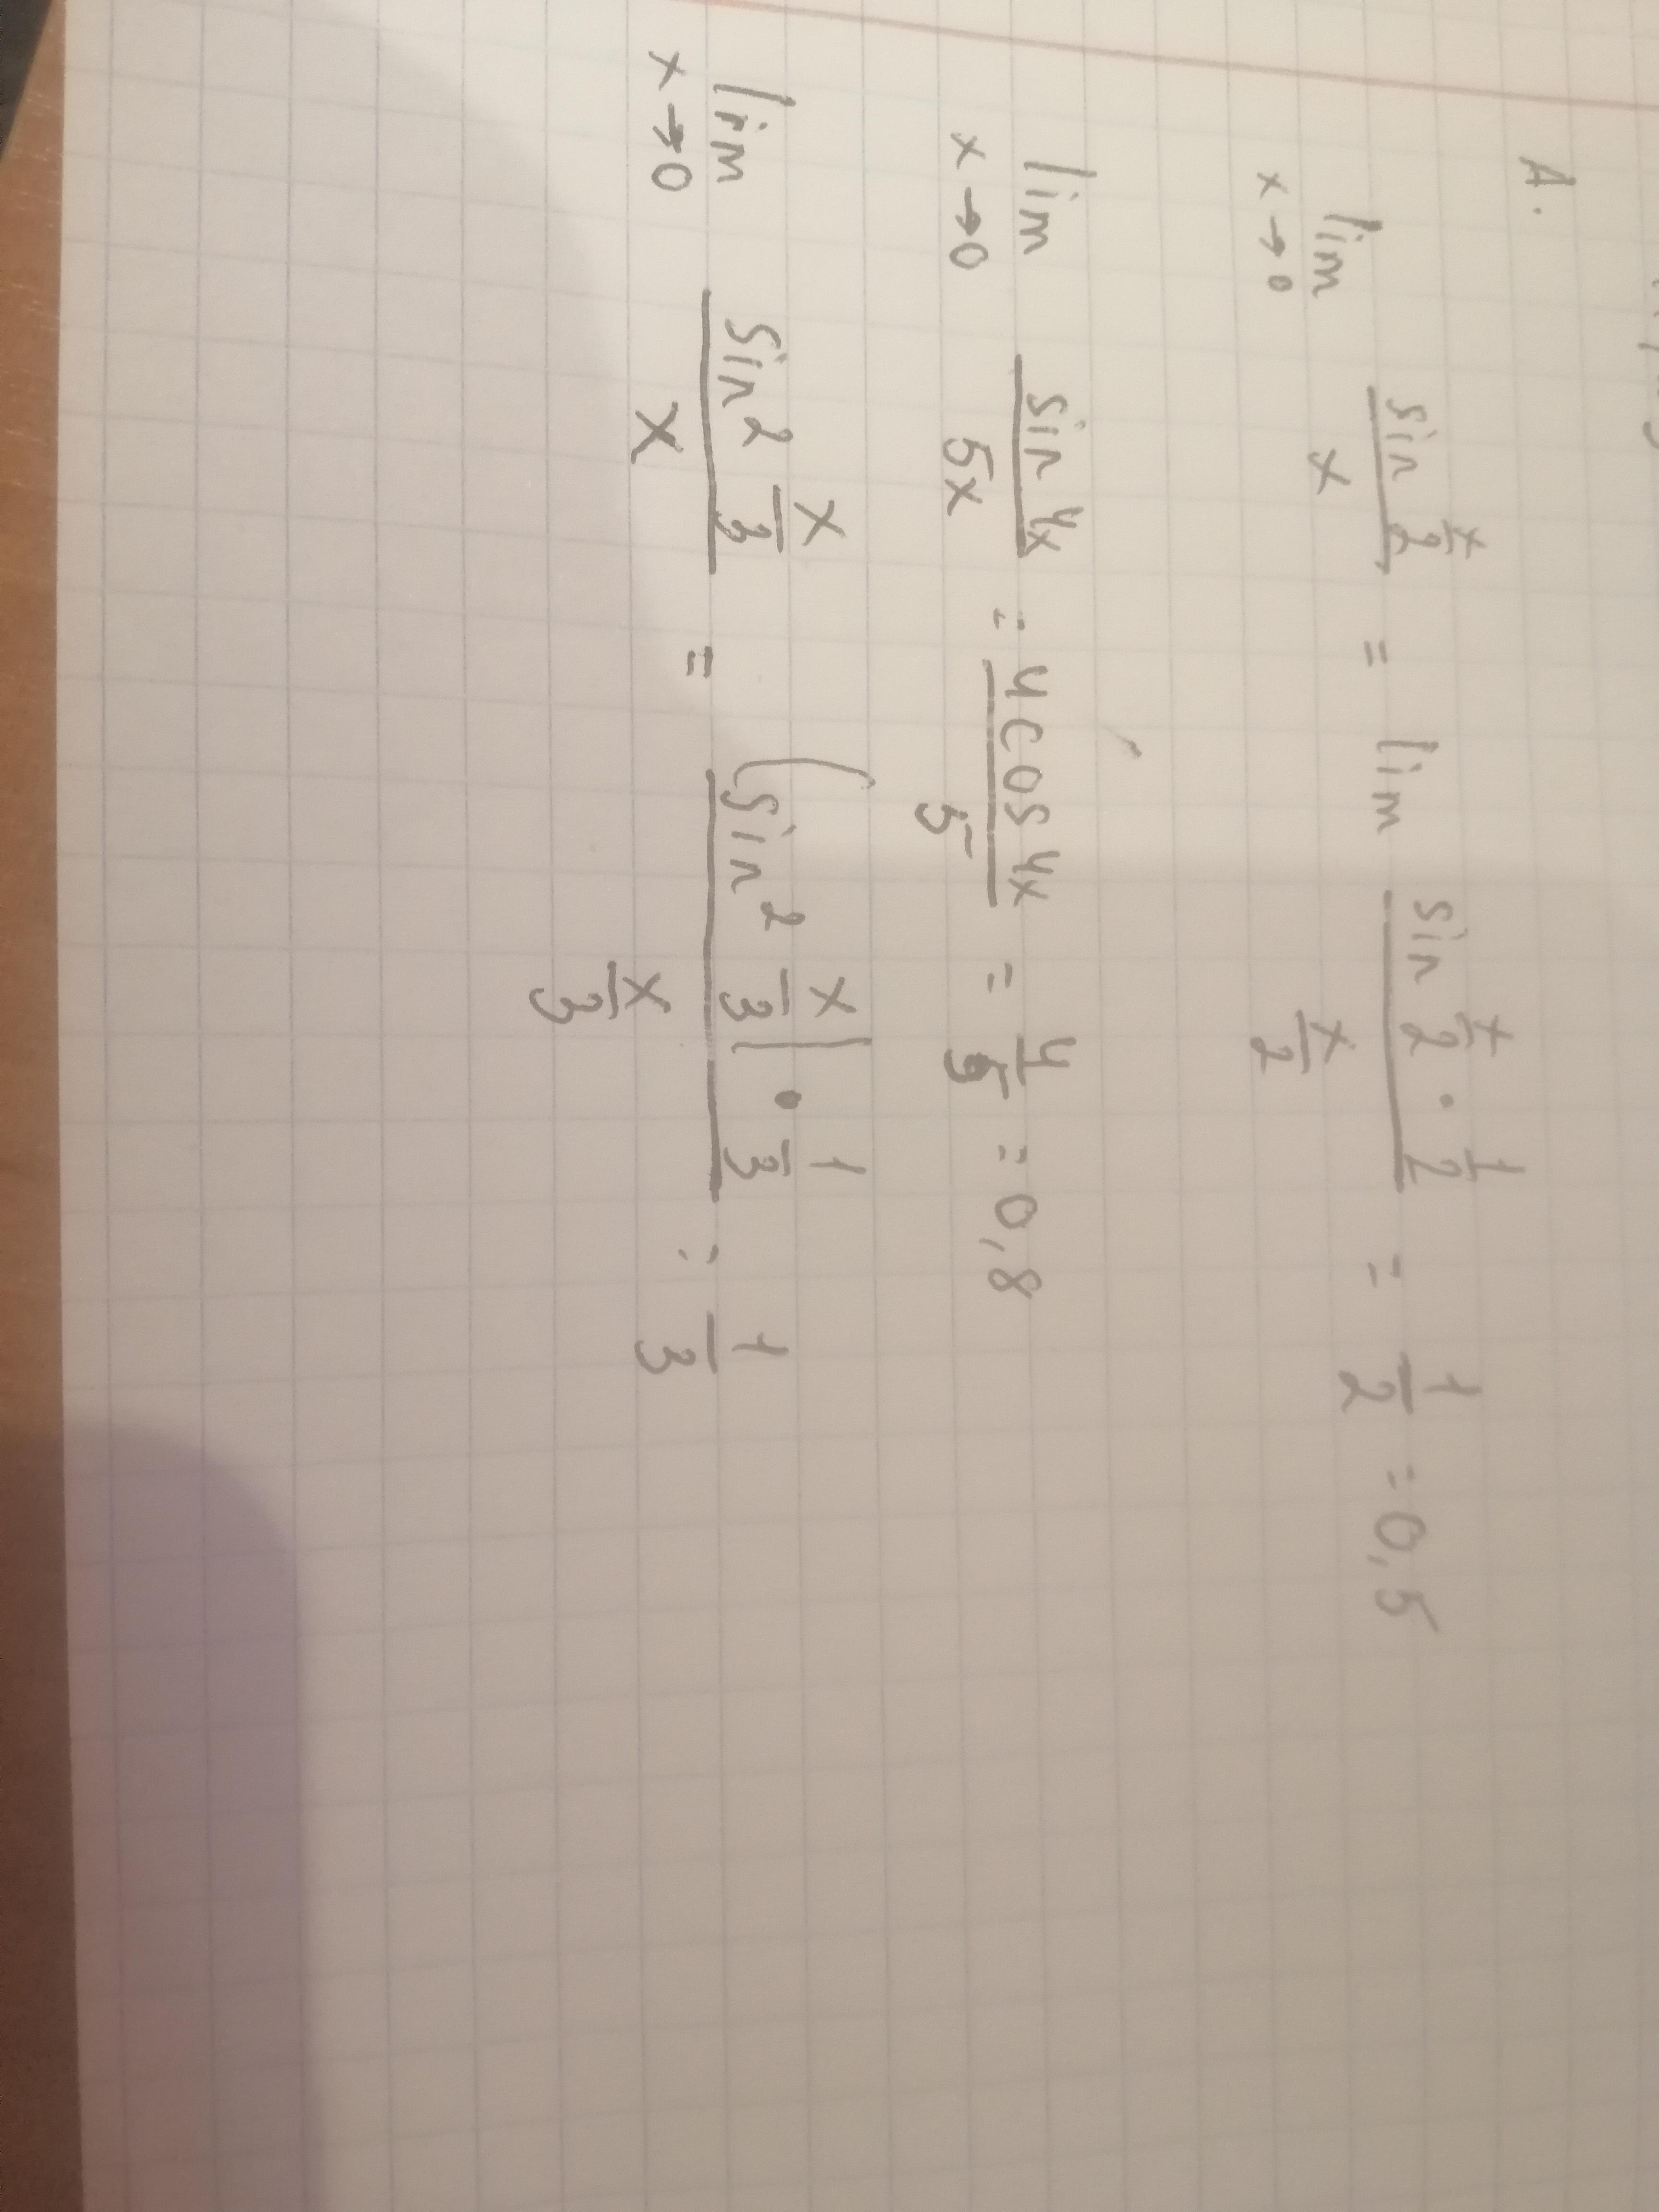 A.
lim x→0 sin x/2 / x = lim sin x/2 · 1/2 / x/2 = 1/2 = 0,5
lim x→0 sin 4x / 5x = 4cos 4x / 5 = 4/5 = 0,8
lim x→0 sin² x/3 / x = (sin² x/3) · 1/3 / x/3 = 1/3